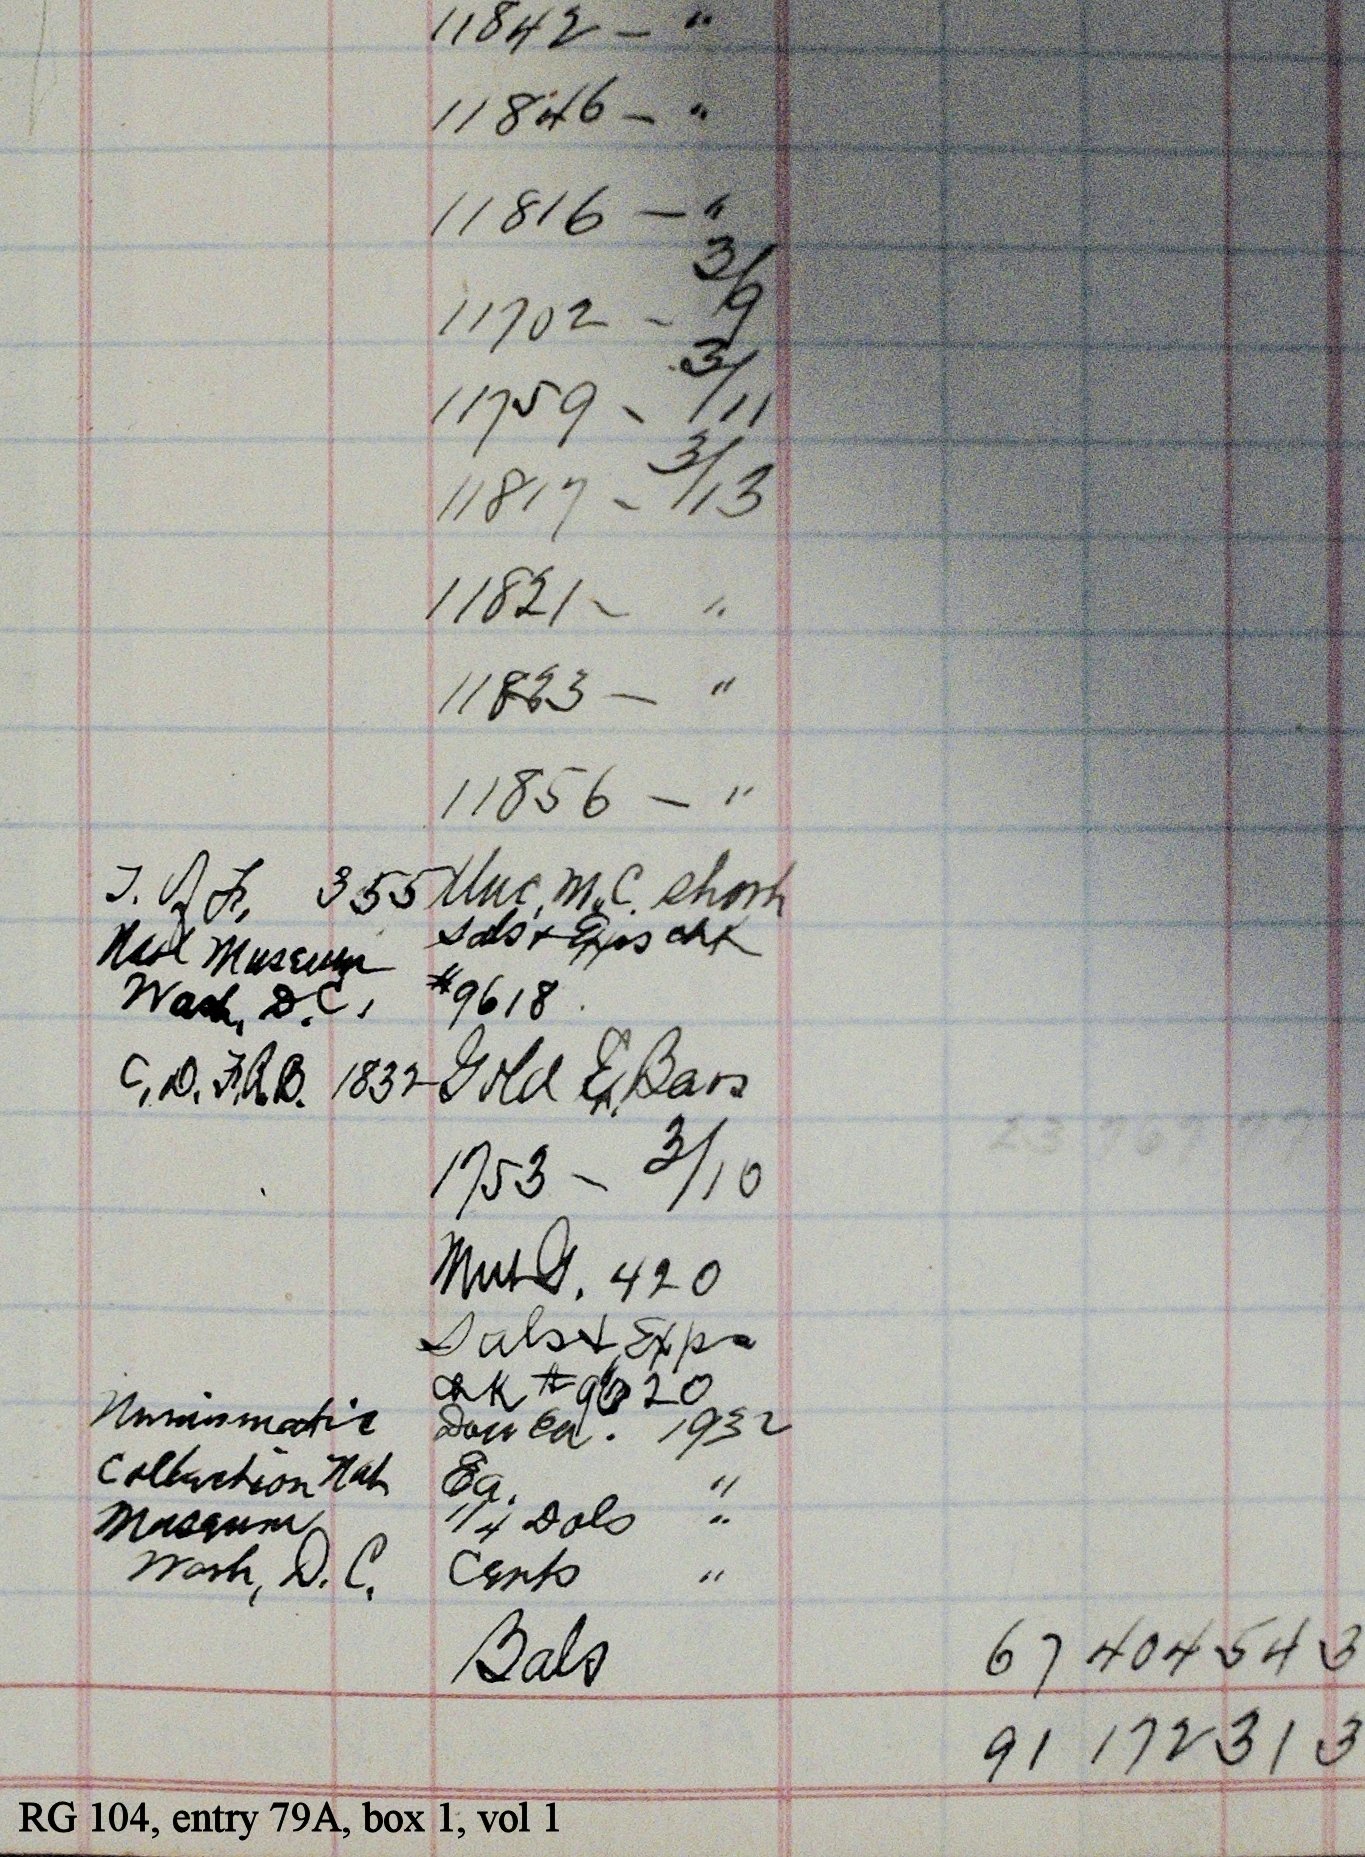 11842 — "
11846 — "
11816 — "
11702 - 3/9
11759 - 3/11
11817 - 3/13
11821 - "
11823 — "
11856 — "
355 Unc. M.C. short
Natl Museum Sals + Exps chk
Wash, D.C. #9618
C.D. F.A.B. 1832 Gold Ex. Bars
23 767 77
1753 - 3/10
Mut G. 420
Sals + Exps
ck # 9620
Numismatic Dou Ea. 1932
Collection Nat. Ea. "
Museum 1/4 Dols "
Wash, D.C. Cents "
Bals 67 404 543
91 172 313
RG 104, entry 79A, box 1, vol 1